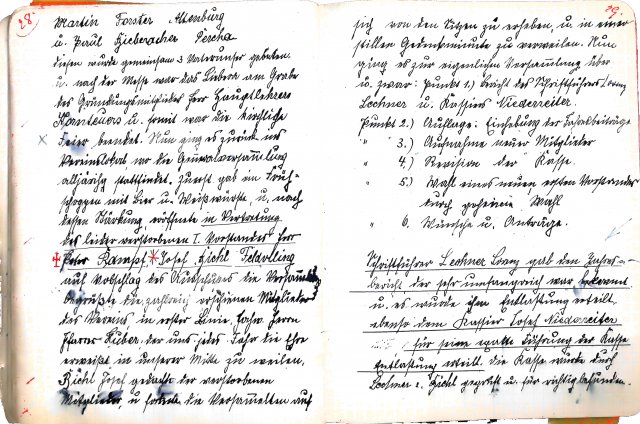 28.
Martin Forster Altenburg
u. Paul Hieberacher Percha
diesen wurde gemeinsam 3 Vaterunser gebeten
u. nach der Messe war das Libera am Grabe
des Gründungsmitglieder Herr Hauptlehrers
u. somit war die kirchliche
Feier beendet. Nun ging es zurück ins
Vereinslokal wo die Generalversammlung
alljährig stattfindet. Zuerst gab es Früh-
schoppen mit Bier u. Weißwürste, u. nach
dessen Stärkung, eröffnete in Vertretung
des leider verstorbenen I. Vorstandes Herr
Peter Rampf, Josef Bichl Feldolling
auf Vorschlag des Ausschusses die Versammlung
begrüßte die zahlreich erschienen Mitglieder
des Vereins, in erster Linie, Hochw. Herrn
Pfarrer Huber, der uns jedes Jahr die Ehre
erweißt in unserer Mitte zu weilen.
Bichl Josef gedachte der verstorbenen
Mitglieder, u. forderte die Versammelten auf
29.
sich von den Sitzen zu erheben, u. in einer
stillen Gedenkminute zu verweilen. Nun
ging es zur eigenlichen Versammlung über
u. zwar: Punkt 1.) Bericht des Schriftführers Lorenz
Lechner u. Kassiers Niederreiter.
Punkt 2.) Auflage: Einhebung der Jahresbeiträge
" 3.) Aufnahme neuer Mitglieder
" 4.) Revision der Kasse.
" 5.) Wahl eines neuen ersten Vorstandes
durch geheime Wahl
" 6. Wünsche u. Anträge.
Schriftführer Lechner Lorenz gab den Jahres-
bericht der sehr umfangreich war bekannt
u. es wurde ihm Entlastung erteilt,
ebenso dem Kassier Josef Niederreiter
für seine gute Führung der Kasse
Entlastung erteilt. die Kasse wurde durch
Lechner u. Bichl geprüft u. für richtig befunden.